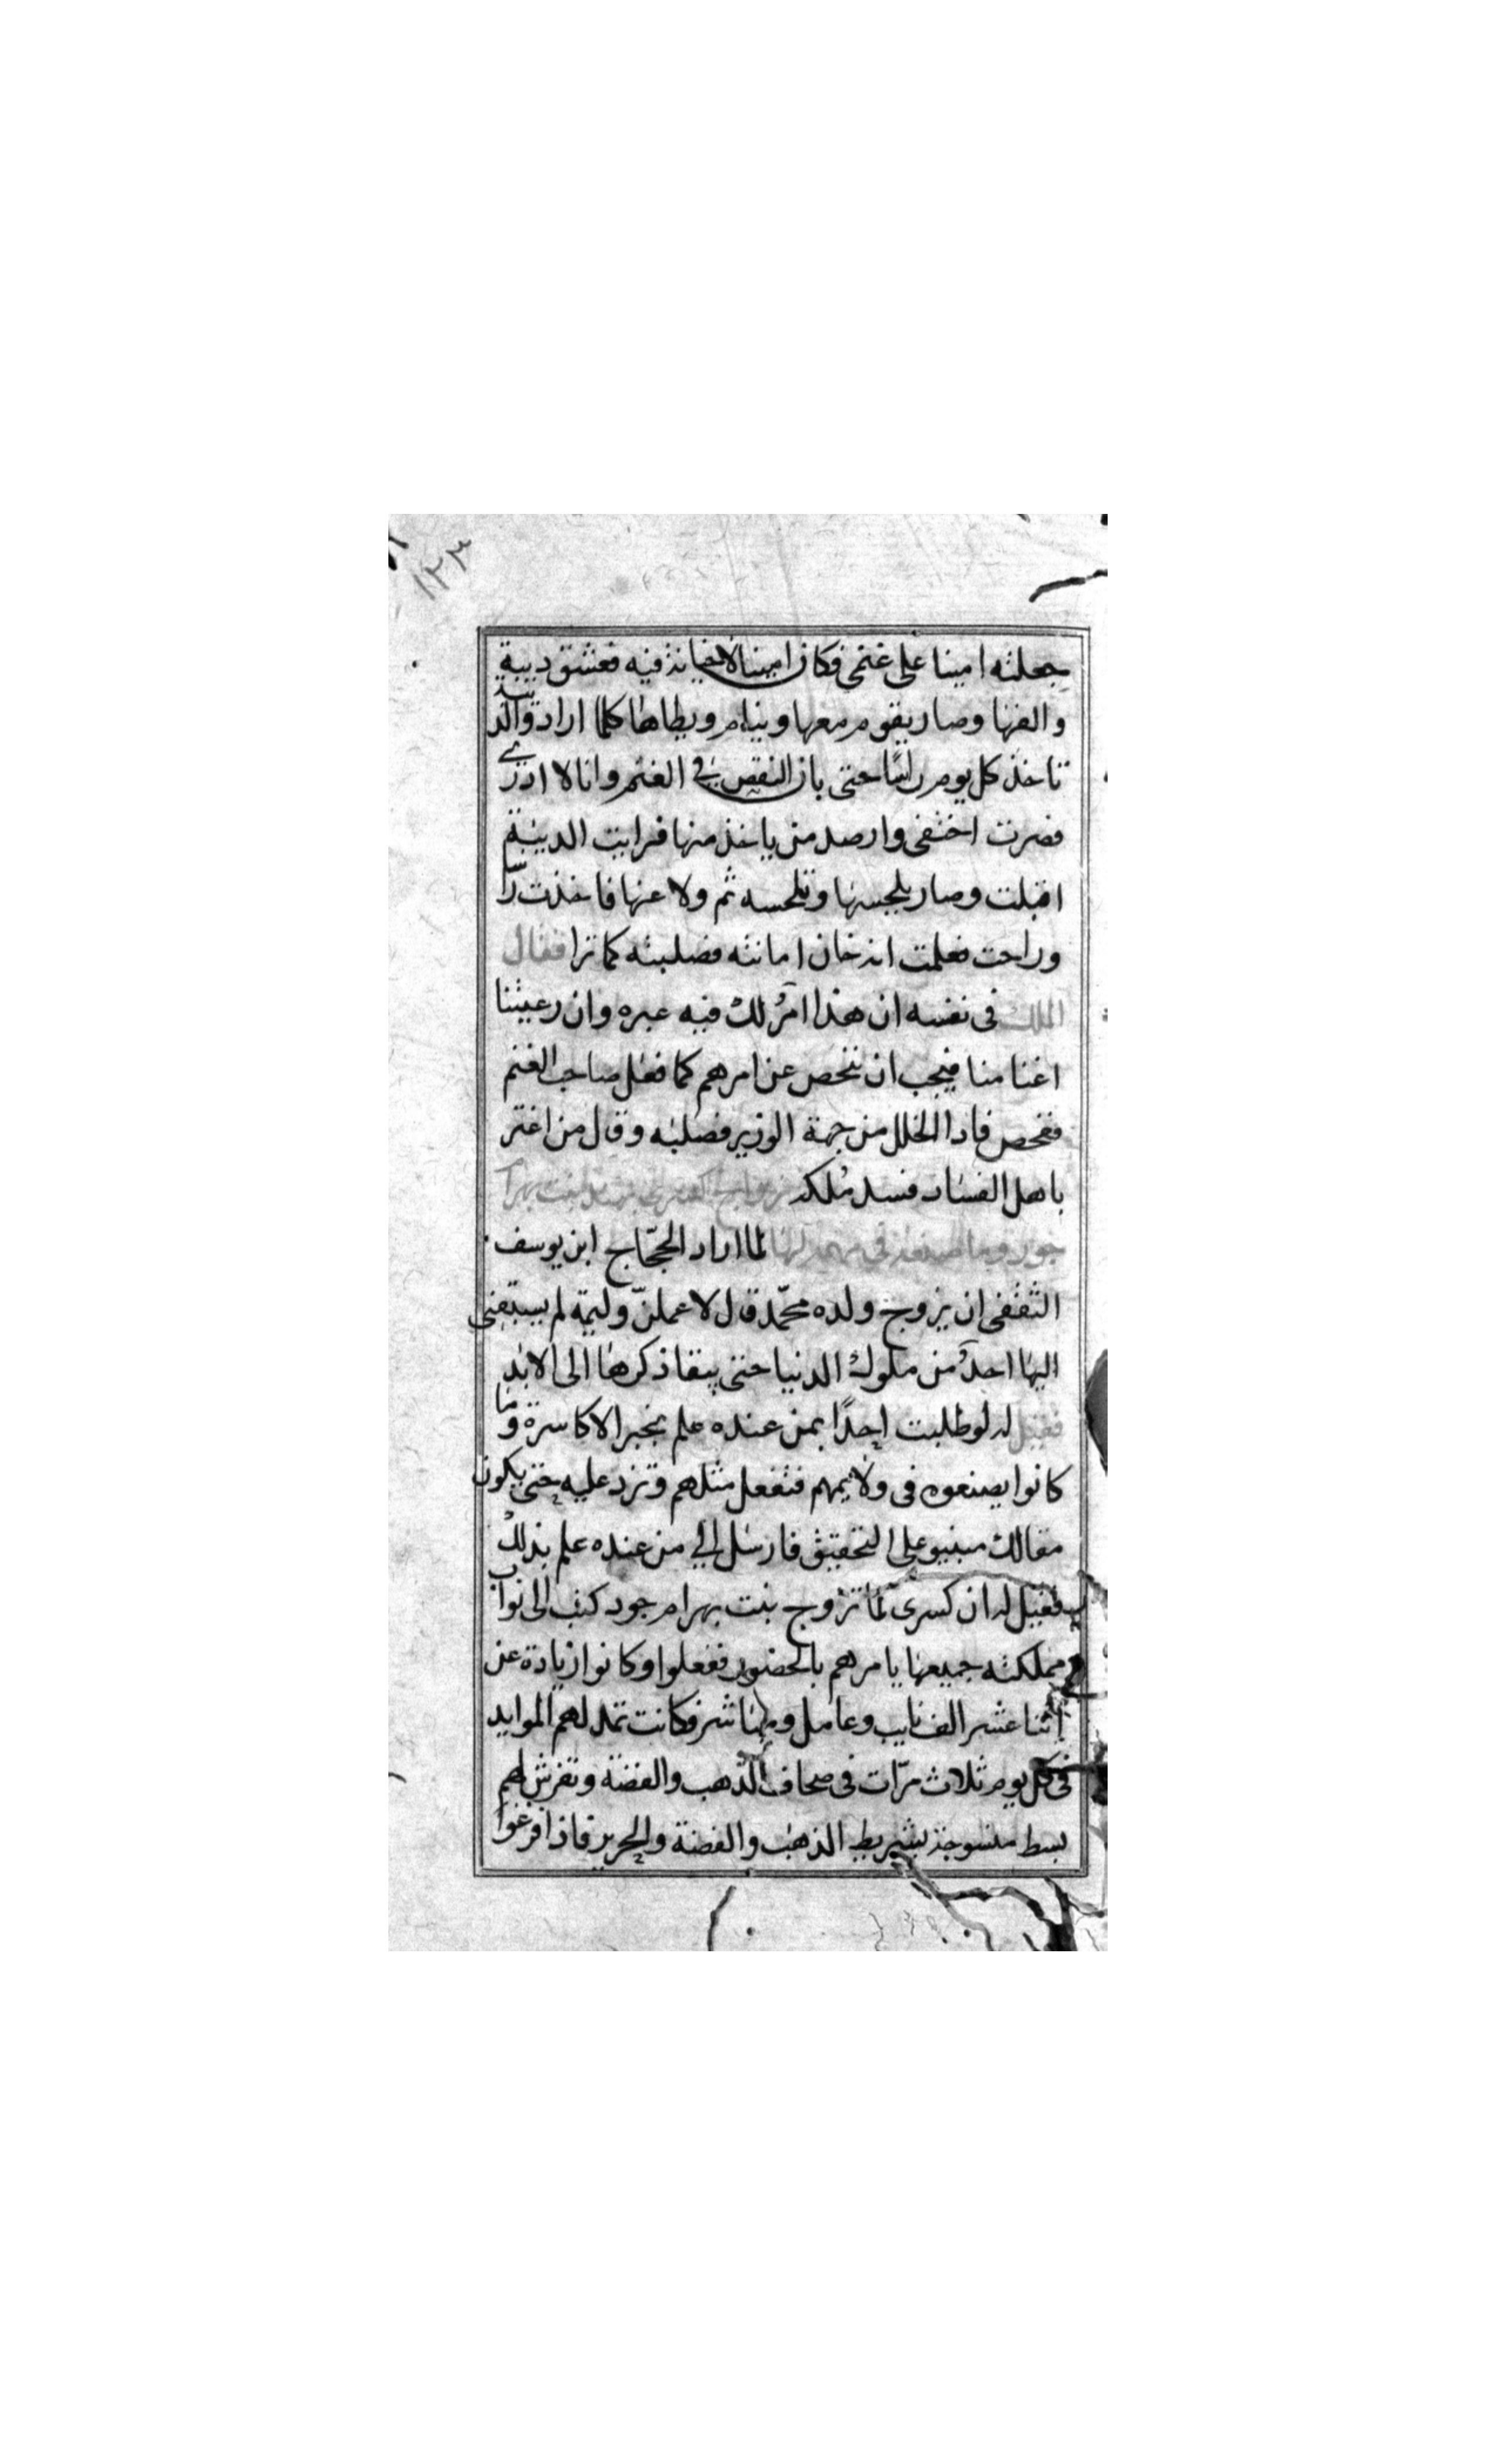 ١٢٣
جعلته امينا على غنمى فكان امينا لا خيانة فيه فعشق ديبة
والفها وصار يقوم معها وينام ويطاها كلما اراد والديبة
تاخذ كل يوم راسًا حتى بان النقص في الغنم وانا لا ادرى
فصرت اختفى وارصد من ياخذ منها فرايت الديبة
اقبلت وصار يلحسها وتلحسه ثم ولا عنها فاخذت راسًا
وراحت فعلمت انه خان امانته فصلبته كما ترا فقال
الملك فى نفسه ان هذا امرٌ لك فيه عبره وان رعيتنا
اغنامنا فيجب ان نفحص عن امرهم كما فعل صاحب الغنم
ففحص فاذا الخلل من جهة الوزير فصلبه وقال من اغتر
باهل الفساد فسد مُلكه زواج كسرى بنت بهرام
جور وما صنعه فى لها لما اراد الحجّاج ابن يوسف
الثقفى ان يزوج ولده محمّد قال لاعملنّ وليمة لم يسبقنى
اليها احدٌ من ملوك الدنيا حتى يبقا ذكرها الى الابد
فقيل له لو طلبت احدًا بمن عنده علم بخبر الاكاسرة وما
كانوا يصنعوه فى ولايمهم فتفعل مثلهم وتزد عليه حتى يكون
مقالك مبنيو على التحقيق فارسل الي من عنده علم بذلك
فقيل له ان كسرى لمّا تزوج بنت بهرام جود كتب الى نواب
مملكته جميعها يامرهم بالحضور ففعلوا وكانوا زيادة عن
اثنا عشر الف نايب وعامل ومباشر فكانت تمد لهم الموايد
فى كل يوم ثلاث مرّات فى صحاف الذهب والفضة وتفرش لهم
بسط منسوجة بشريط الذهب والفضة والحرير فاذا فرغوا